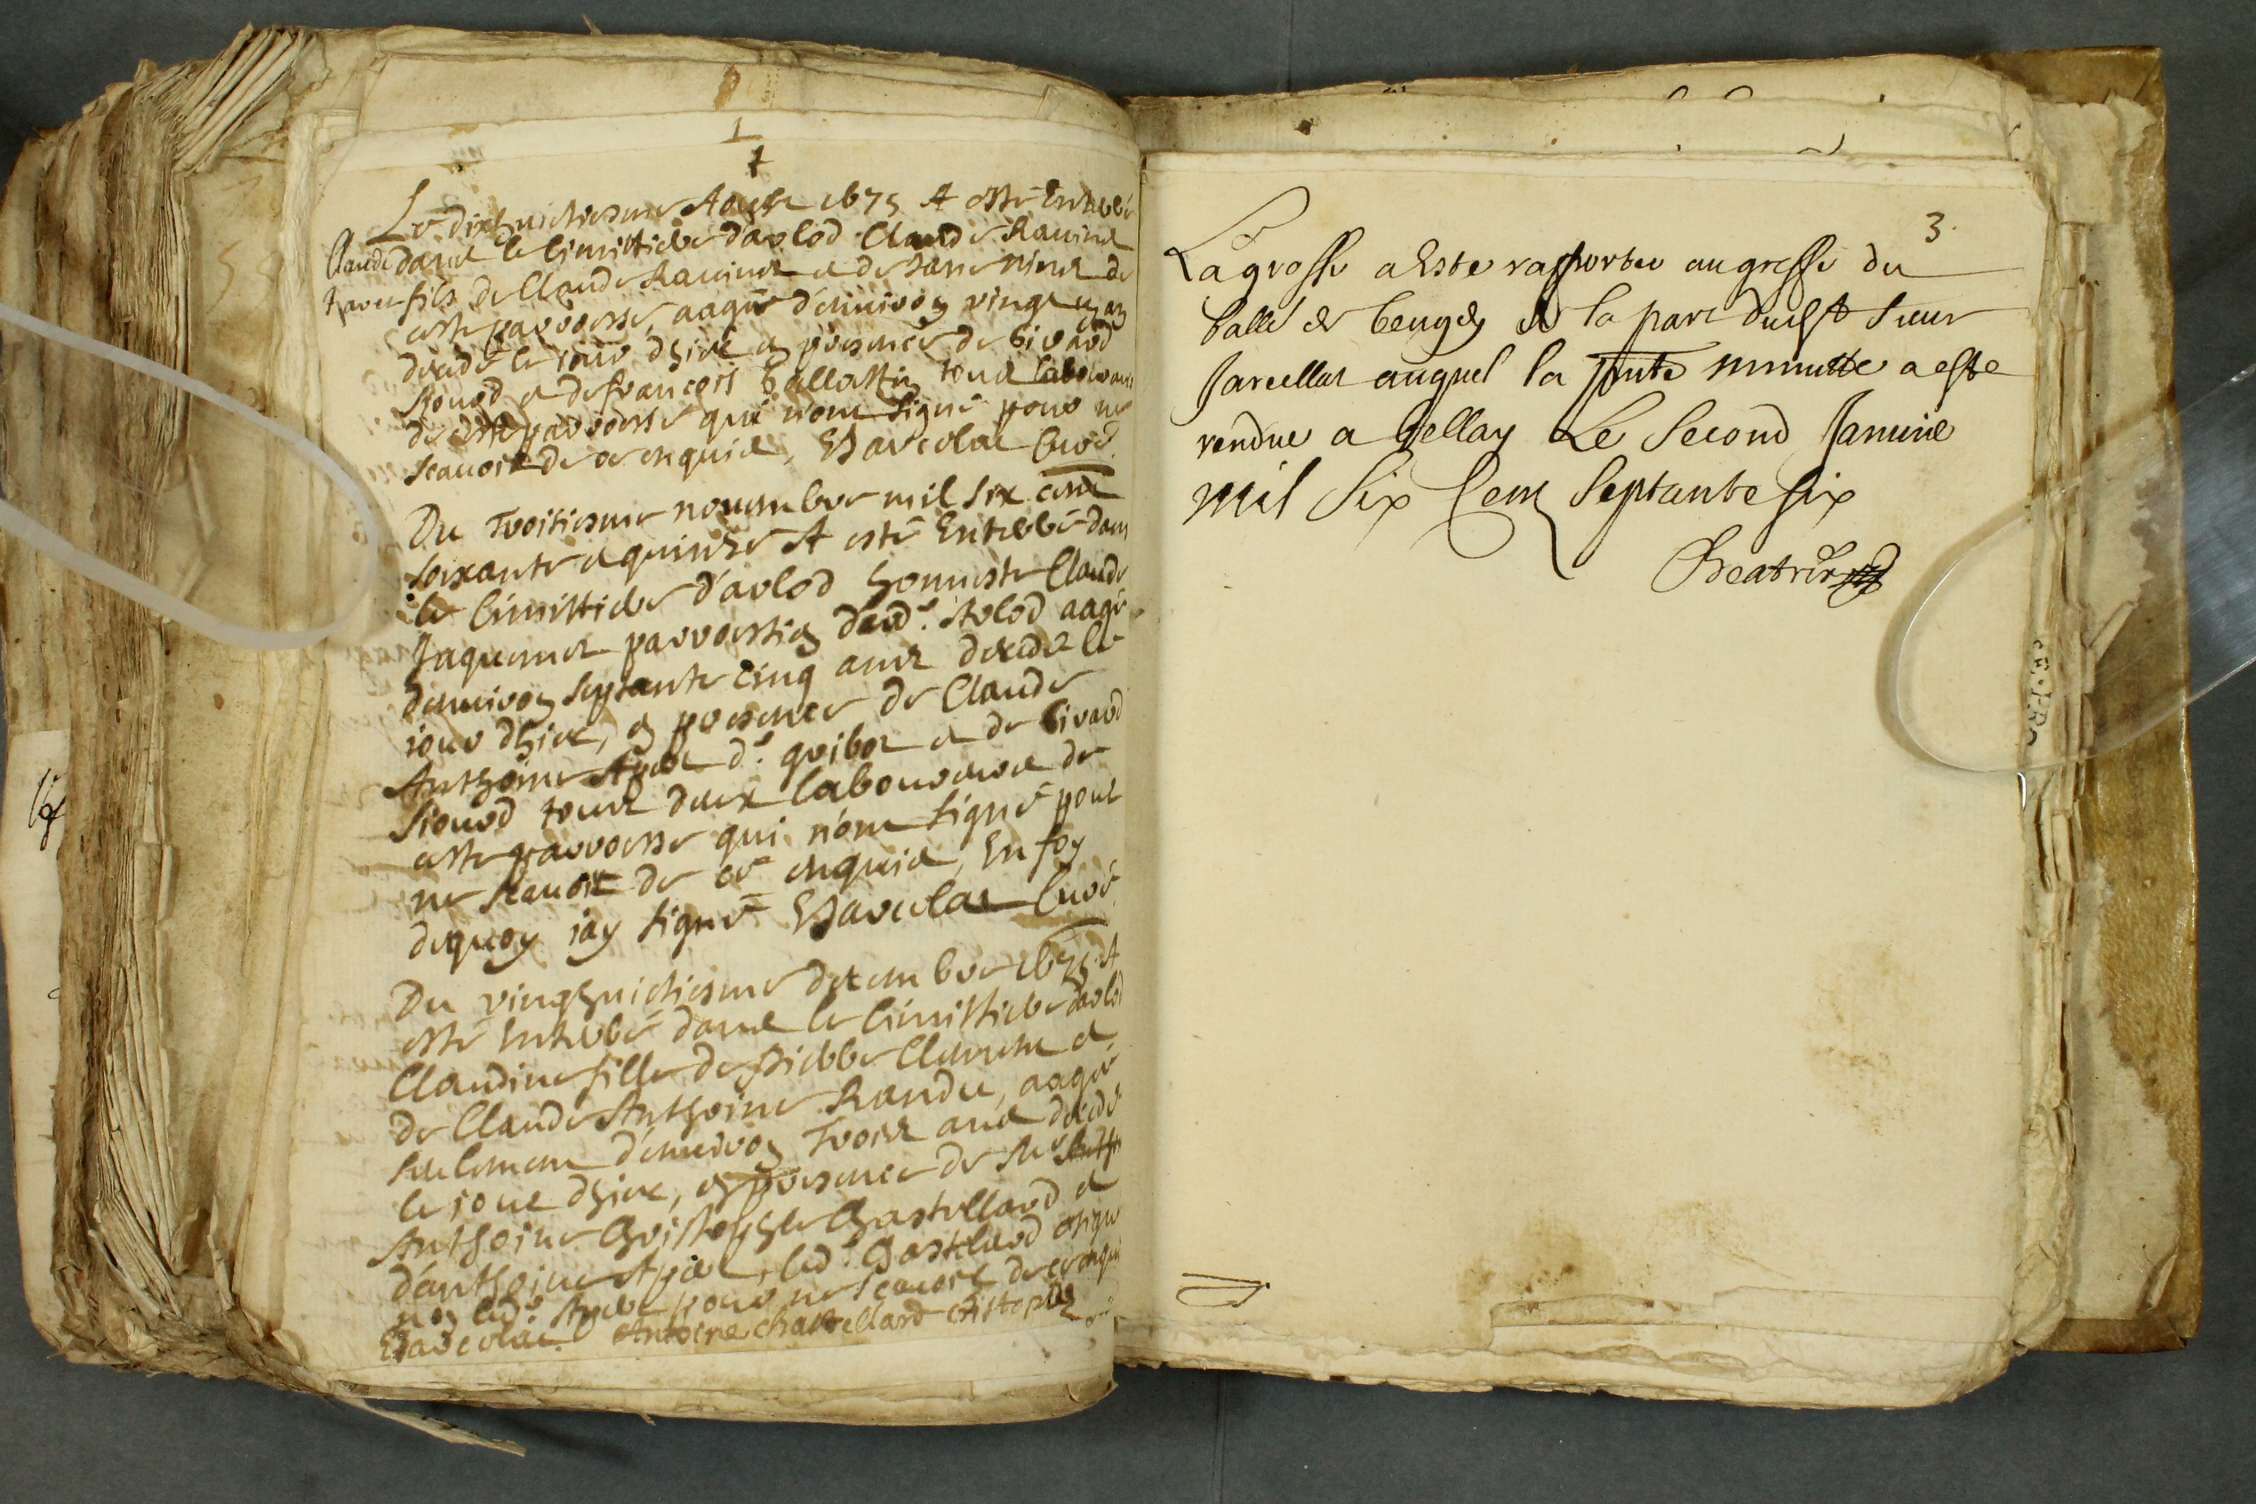 1
Le dixhuictiesme Aoust 1675 A esté Enterré
dans le Cimittiere d'arlod Claude Ravinet
Claude
fils de Claude Ravinet et de
ceste parroesse, aagé d'environ vingt
decedé le jour dhier en presence de Girard
Sioud et de françois Ballastin tous laboureurs
de ceste parroesse qui n'ont signé pour ne
scavoir de ce enquis, Marcelat Curé
Du Troisiesme novembre mil six cent
soixante et quinze A esté Enterré dans
le Cimittiere d'arlod honneste Claude
Jaquemet parroessien dud. Arlod aagé
d'environ septante cinq ans decedé le
jour dhier, en presence de Claude
Anthoine et de Girard
Sioud tous deux laboureurs de
ceste parroesse qui n'ont signé pour
ne scavoir de ce enquis, En foy
dequoy jay signé Marcelat Curé
Du vingthuictiesme decembre 1675 A
esté Enterré dans le Cimittiere darlod
Claudine fille de Pierre et
de Claude Anthoine Randu, aagée
seulement d'environ Trois ans decedé
le jour dhier, en presence de
Anthoine Christophle Chastellard et
d'anthoine led. Chastelard signé
non led. pour ne scavoir de ce enquis
Marcelat Antoine chastellard
3.
La grosse a Este rapportee au greffe du
balle de beugey de la part dudit Sieur
Marcellat auquel la pnte minutte a este
rendue a bellay Le Second Janvie
mil Six Cent Septante six